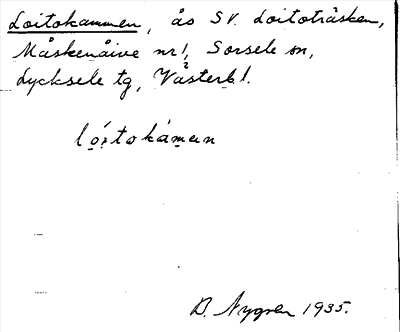 Loitokammen, ås SV. Loitoträsken,
Måskenåive nr 1, Sorsele sn,
Lycksele tg, Västerb l.
loitokamen
D. Nygren 1935.